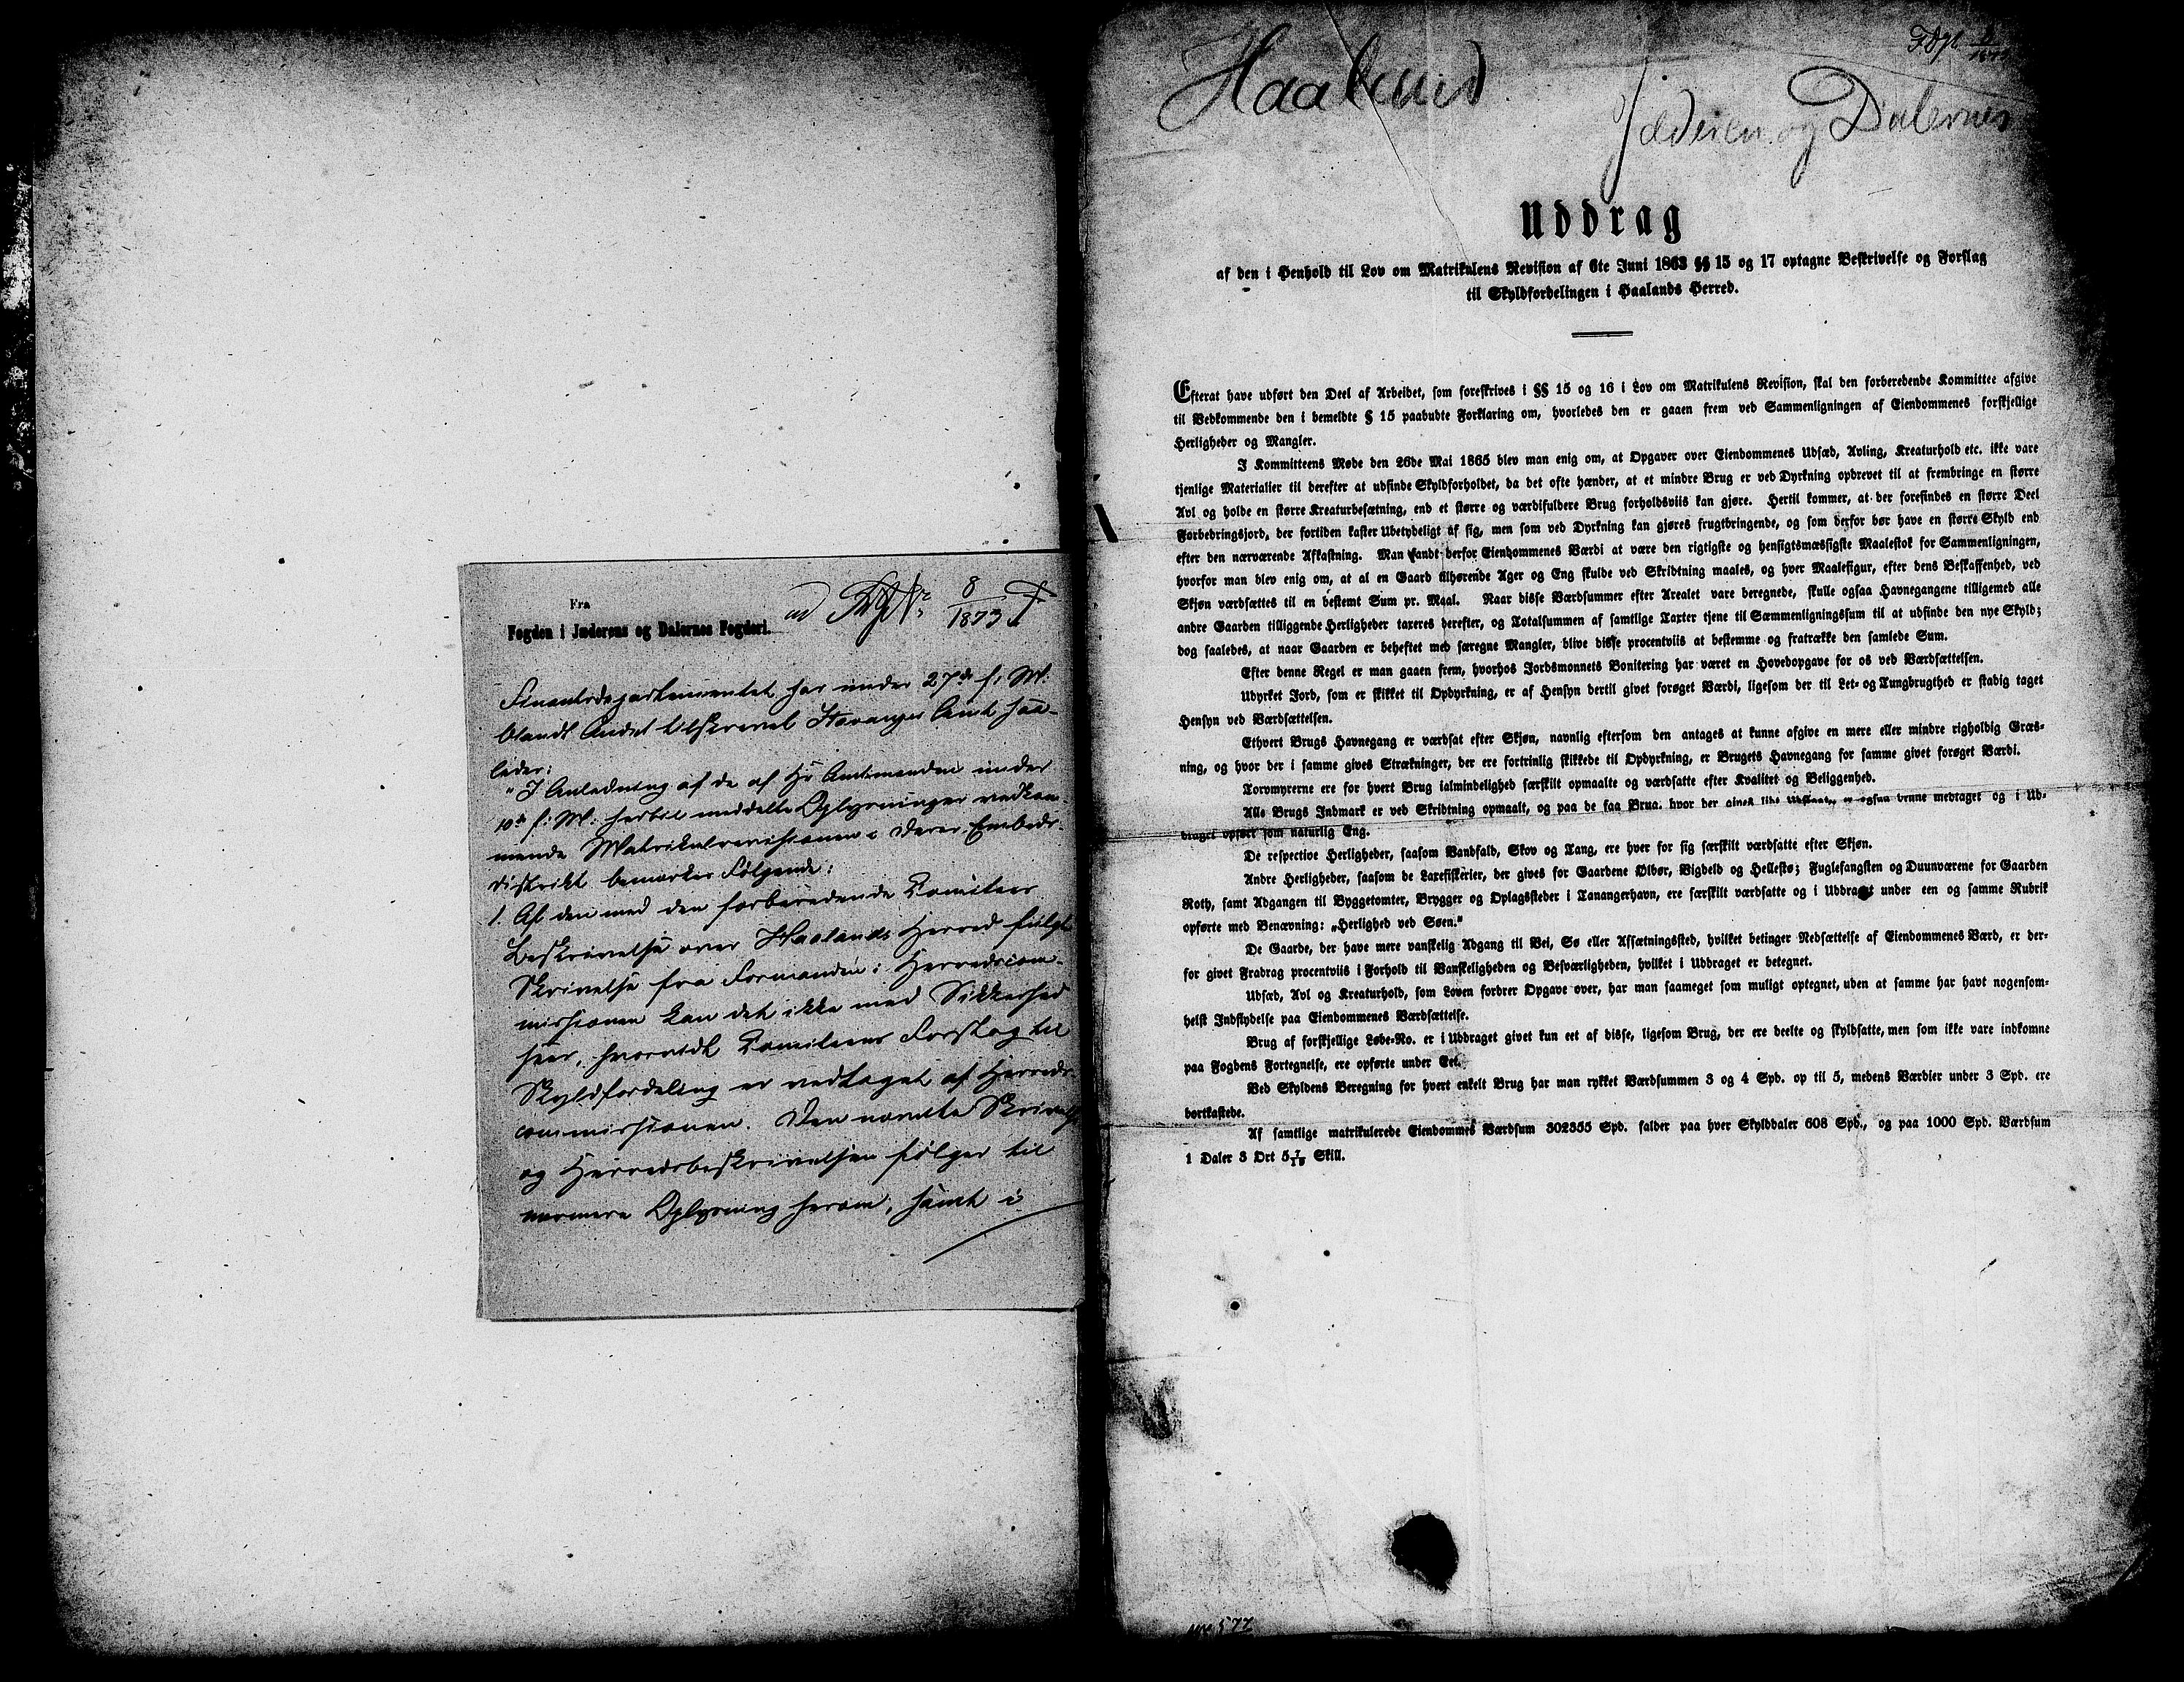 Fra
Fogden i Jæderens og Dalernes Fogderi.
ad 8/1873
Finantsdepartementet har under 27de f. M.
blandt Andet tilskrevet Stavanger Amt saa-
ledes:
"I Anledning af de af Hr Amtmanden under
10de f. M. hertil meddelte Oplysninger vedkom-
mende Matrikulrevisionen i Deres Embeds-
distrikt bemærkes Følgende:
1. Af den med den forberedende Comitees
Beskrivelse over Haalands Herred fulgte
Skrivelse fra Formanden i Herredscom-
missionen kan det ikke med Sikkerhed
sees, hvorvidt Comiteens Forslag til
Skyldfordeling er vedtaget af Herreds-
commissionen. Den nævnte Skrivelse
og Herredsbeskrivelsen følger til
nærmere Oplysning herom, samt i
Haaland
Jæderen og Dalernes
Uddrag
af den i Henhold til Lov om Matrikulens Revision af 6te Juni 1863 §§ 15 og 17 optagne Beskrivelse og Forslag
til Skyldfordelingen i Haalands Herred.
Efterat have udført den Deel af Arbeidet, som foreskrives i §§ 15 og 16 i Lov om Matrikulens Revision, skal den forberedende Kommittee afgive
til Vedkommende den i bemeldte § 15 paabudte Forklaring om, hvorledes den er gaaen frem ved Sammenligningen af Eiendommenes forskjellige
Herligheder og Mangler.
I Kommitteens Møde den 26de Mai 1865 blev man enig om, at Opgaver over Eiendommenes Udsæd, Avling, Kreaturhold etc. ikke vare
tjenlige Materialier til derefter at udfinde Skyldforholdet, da det ofte hænder, at et mindre Brug er ved Dyrkning opdrevet til at frembringe en større
Avl og holde en større Kreaturbesætning, end et større og værdifuldere Brug forholdsviis kan gjøre. Hertil kommer, at der forefindes en større Deel
Forbedringsjord, der fortiden kaster Ubetydeligt af sig, men som ved Dyrkning kan gjøres frugtbringende, og som derfor bør have en større Skyld end
efter den nærværende Afkastning. Man fandt derfor Eiendommenes Værdi at være den rigtigste og hensigtsmæssigste Maalestok for Sammenligningen,
hvorfor man blev enig om, at al en Gaard tilhørende Ager og Eng skulde ved Skridtning maales, og hver Maalefigur, efter dens Beskaffenhed, ved
Skjøn værdsættes til en bestemt Sum pr. Maal. Naar disse Værdsummer efter Arealet vare beregnede, skulle ogsaa Havnegangene tilligemed alle
andre Gaarden tilliggende Herligheder taxeres derefter, og Totalsummen af samtlige Taxter tjene til Sammenligningssum til at udfinde den nye Skyld;
dog saaledes, at naar Gaarden er beheftet med særegne Mangler, blive disse procentviis at bestemme og fratrække den samlede Sum.
Efter denne Regel er man gaaen frem, hvorhos Jordsmonnets Bonitering har været en Hovedopgave for os ved Værdsættelsen.
Udyrket Jord, som er skikket til Opdyrkning, er af Hensyn dertil givet forøget Værdi, ligesom der til Let- og Tungbrugthed er stadig taget
Hensyn ved Værdsættelsen.
Ethvert Brugs Havnegang er værdsat efter Skjøn, navnlig eftersom den antages at kunne afgive en mere eller mindre righoldig Græs-
ning, og hvor der i samme gives Strækninger, der ere fortrinlig skikkede til Opdyrkning, er Brugets Havnegang for samme givet forøget Værdi.
Torvmyrerne ere for hvert Brug ialmindelighed særskilt opmaalte og værdsatte efter Kvalitet og Beliggenhed.
Alle Brugs Indmark er ved Skridtning opmaalt, og paa de faa Brug, hvor der gives lidt Udslaat, er ogsaa denne medtaget og i Ud-
draget opført som naturlig Eng.
De respective Herligheder, saasom Vandfald, Skov og Tang, ere hver for sig særskilt værdsatte efter Skjøn.
Andre Herligheder, saasom de Laxefiskerier, der gives for Gaardene Ølbør, Vigdeld og Hellestø; Fuglefangsten og Duunværene for Gaarden
Roth, samt Adgangen til Byggetomter, Brygger og Oplagssteder i Tanangerhavn, ere særskilt værdsatte og i Uddraget under een og samme Rubrik
opførte med Benævning: „Herlighed ved Søen."
De Gaarde, der have mere vanskelig Adgang til Vei, Sø eller Afsætningssted, hvilket betinger Nedsættelse af Eiendommenes Værd, er der-
for givet Fradrag procentviis i Forhold til Vanskeligheden og Besværligheden, hvilket i Uddraget er betegnet.
Udsæd, Avl og Kreaturhold, som Loven fordrer Opgave over, har man saameget som muligt optegnet, uden at samme har havt nogensom-
helst Indflydelse paa Eiendommenes Værdsættelse.
Brug af forskjellige Løbe-No. er i Uddraget givet kun eet af disse, ligesom Brug, der ere deelte og skyldsatte, men som ikke vare indkomne
paa Fogdens Fortegnelse, ere opførte under Eet.
Ved Skyldens Beregning for hvert enkelt Brug har man rykket Værdsummen 3 og 4 Spd. op til 5, medens Værdier under 3 Spd. ere
bortkastede.
Af samtlige matrikulerede Eiendommes Værdsum 302355 Spd. falder paa hver Skylddaler 608 Spd., og paa 1000 Spd. Værdsum
1 Daler 3 Ort 5 7/19 Skill.
577